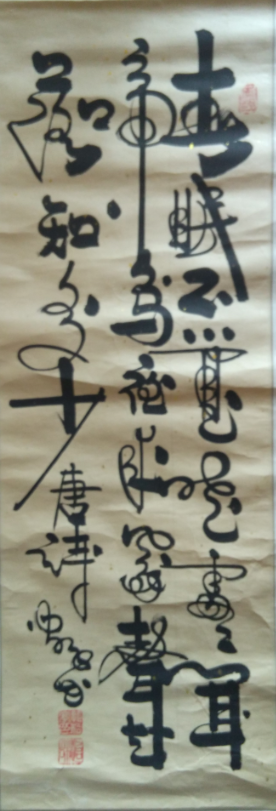 春眠不覺曉處々聞
啼鳥夜来風雨聲花
落知多少唐詩